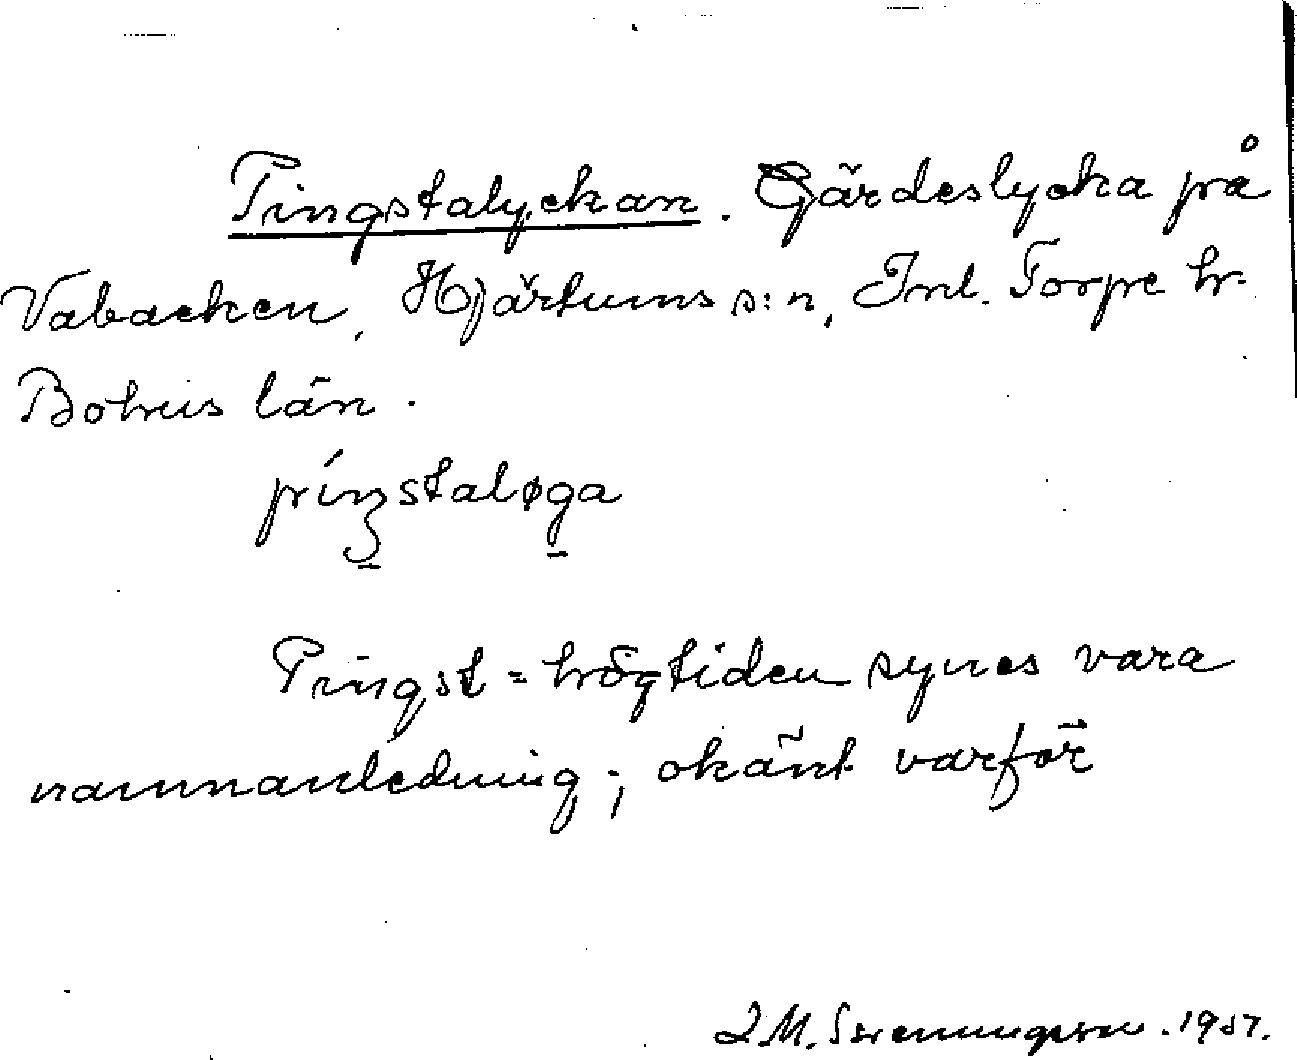 Pingstalyckan. Gärdeslycka på
Vabacken, Hjärtums s:n, Inl. Torpe hr.
Bohus län.
píŋstaløga
Pingst = högtiden synes vara
namnanledning; okänt varför
1957.